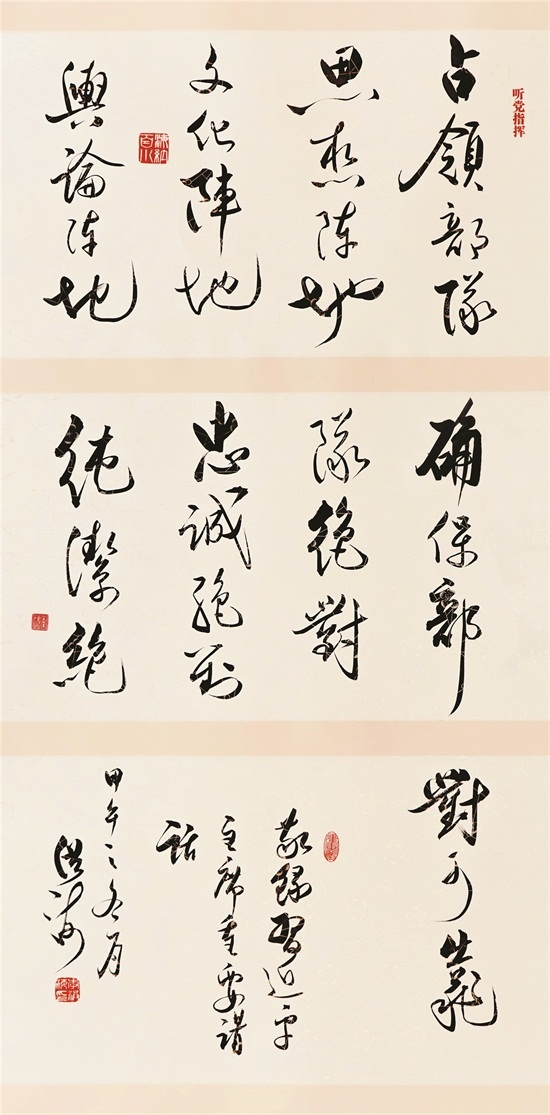 听党指挥
占領部隊
思想阵地
文化陣地
輿論阵地
确保部
隊絶對
忠誠絶对
純潔絶
對可靠
敬録習近平
主席重要講
話
甲午之冬月
洪海